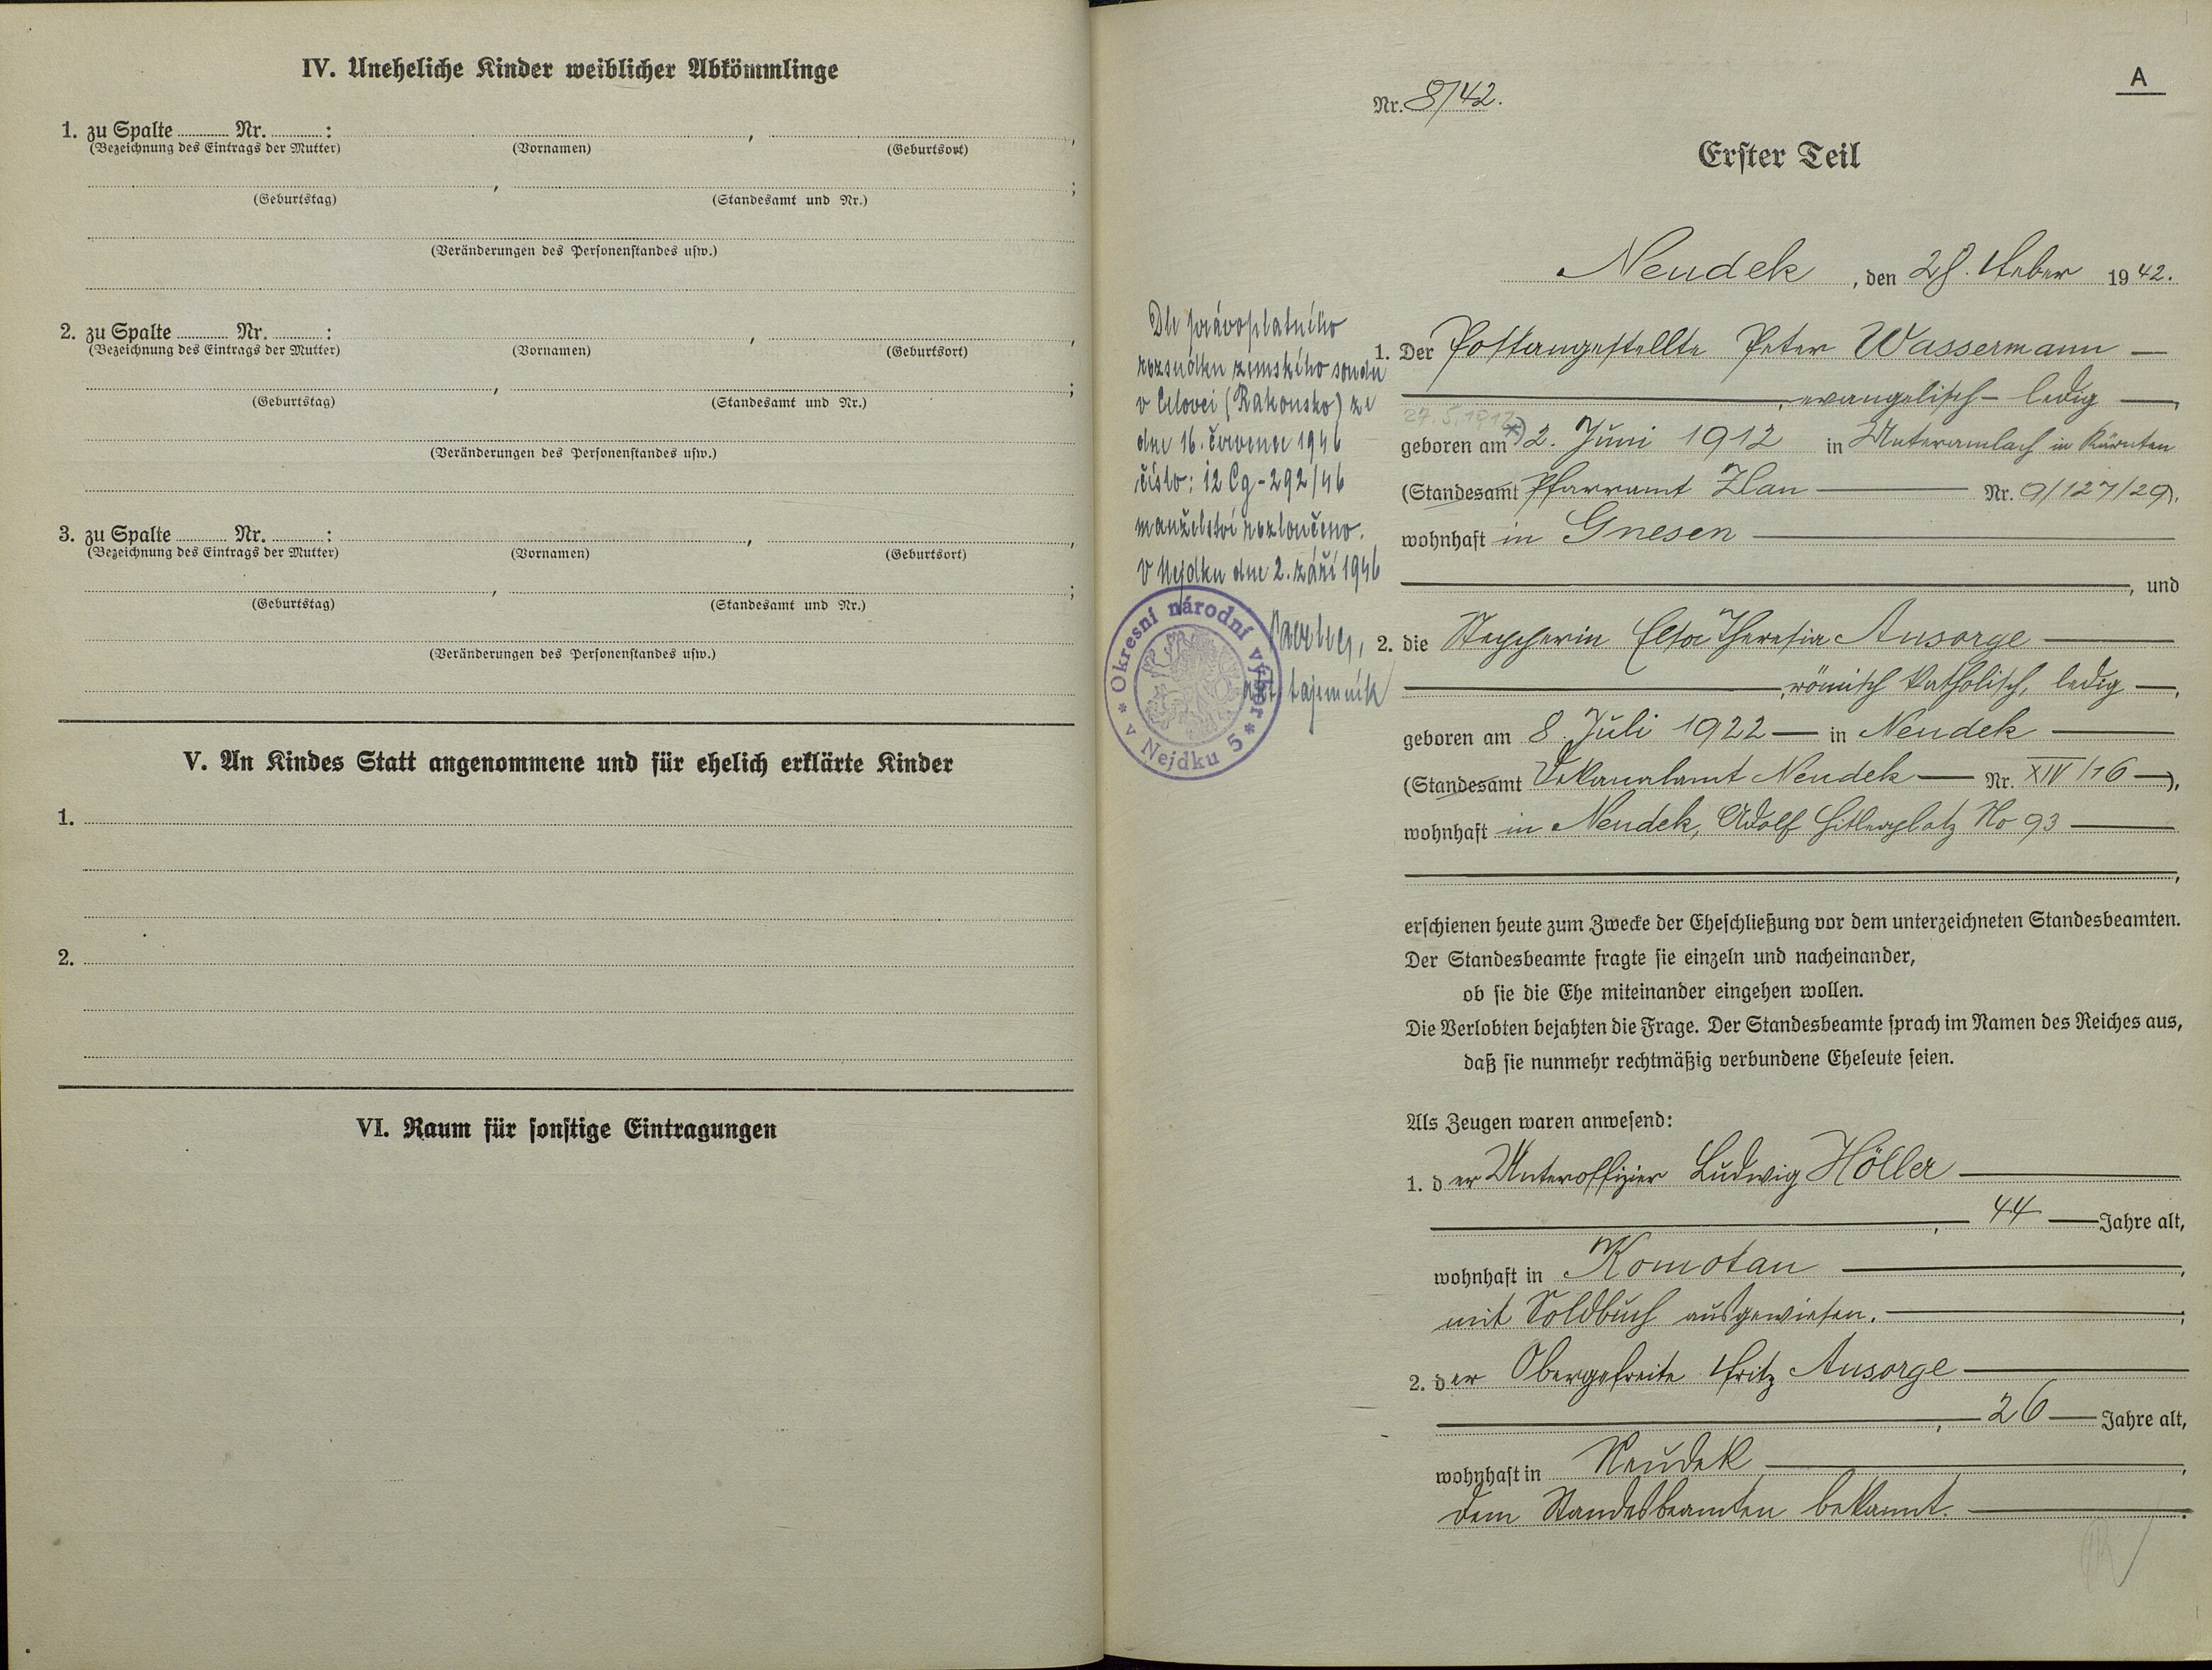 IV. Uneheliche Kinder weiblicher Abkömmlinge
1. zu Spalte Nr. : , ,
(Bezeichnung des Eintrags der Mutter) (Vornamen) (Geburtsort)
, ;
(Geburtstag) (Standesamt und Nr.)
(Veränderungen des Personenstandes usw.)
2. zu Spalte Nr. : , ,
(Bezeichnung des Eintrags der Mutter) (Vornamen) (Geburtsort)
, ;
(Geburtstag) (Standesamt und Nr.)
(Veränderungen des Personenstandes usw.)
3. zu Spalte Nr. : , ,
(Bezeichnung des Eintrags der Mutter) (Vornamen) (Geburtsort)
, ;
(Geburtstag) (Standesamt und Nr.)
(Veränderungen des Personenstandes usw.)
V. An Kindes Statt angenommene und für ehelich erklärte Kinder
1.
2.
VI. Raum für sonstige Eintragungen
A
Nr. 8/42.
Erster Teil
Neudek, den 28. feber 1942.
Dle právoplatného
rozsudku zemského soudu
v Celovci (Rakousko) ze
dne 16. července 1946
číslo: 12 Cg-292/46
manželství rozloučeno.
V Nejdku dne 2. září 1946
tajemník
* Okresní národní výbor * v Nejdku 5
1. Der Postangestellte Peter Wassermann
, evangelisch – ledig ,
27.5.1912
geboren am *) 2. Juni 1912 in Unteramlach in Kärnten
(Standesamt Pfarramt Zlan Nr. 9/127/29),
wohnhaft in Gnesen
, und
2. die Stepperin Elsa Theresia Ansorge
, römisch katholisch, ledig ,
geboren am 8. Juli 1922 in Neudek
(Standesamt Dekanalamt Neudek Nr. XIV/76 ),
wohnhaft in Neudek, Adolf Hitlerplatz No 93
,
erschienen heute zum Zwecke der Eheschließung vor dem unterzeichneten Standesbeamten.
Der Standesbeamte fragte sie einzeln und nacheinander,
ob sie die Ehe miteinander eingehen wollen.
Die Verlobten bejahten die Frage. Der Standesbeamte sprach im Namen des Reiches aus,
daß sie nunmehr rechtmäßig verbundene Eheleute seien.
Als Zeugen waren anwesend:
1. der Unteroffizier Ludwig Höller
, 44 Jahre alt,
wohnhaft in Komotau ,
mit Soldbuch ausgewiesen. ;
2. der Obergefreite Fritz Ansorge
, 26 Jahre alt,
wohnhaft in Neudek ,
dem Standesbeamten bekannt. .